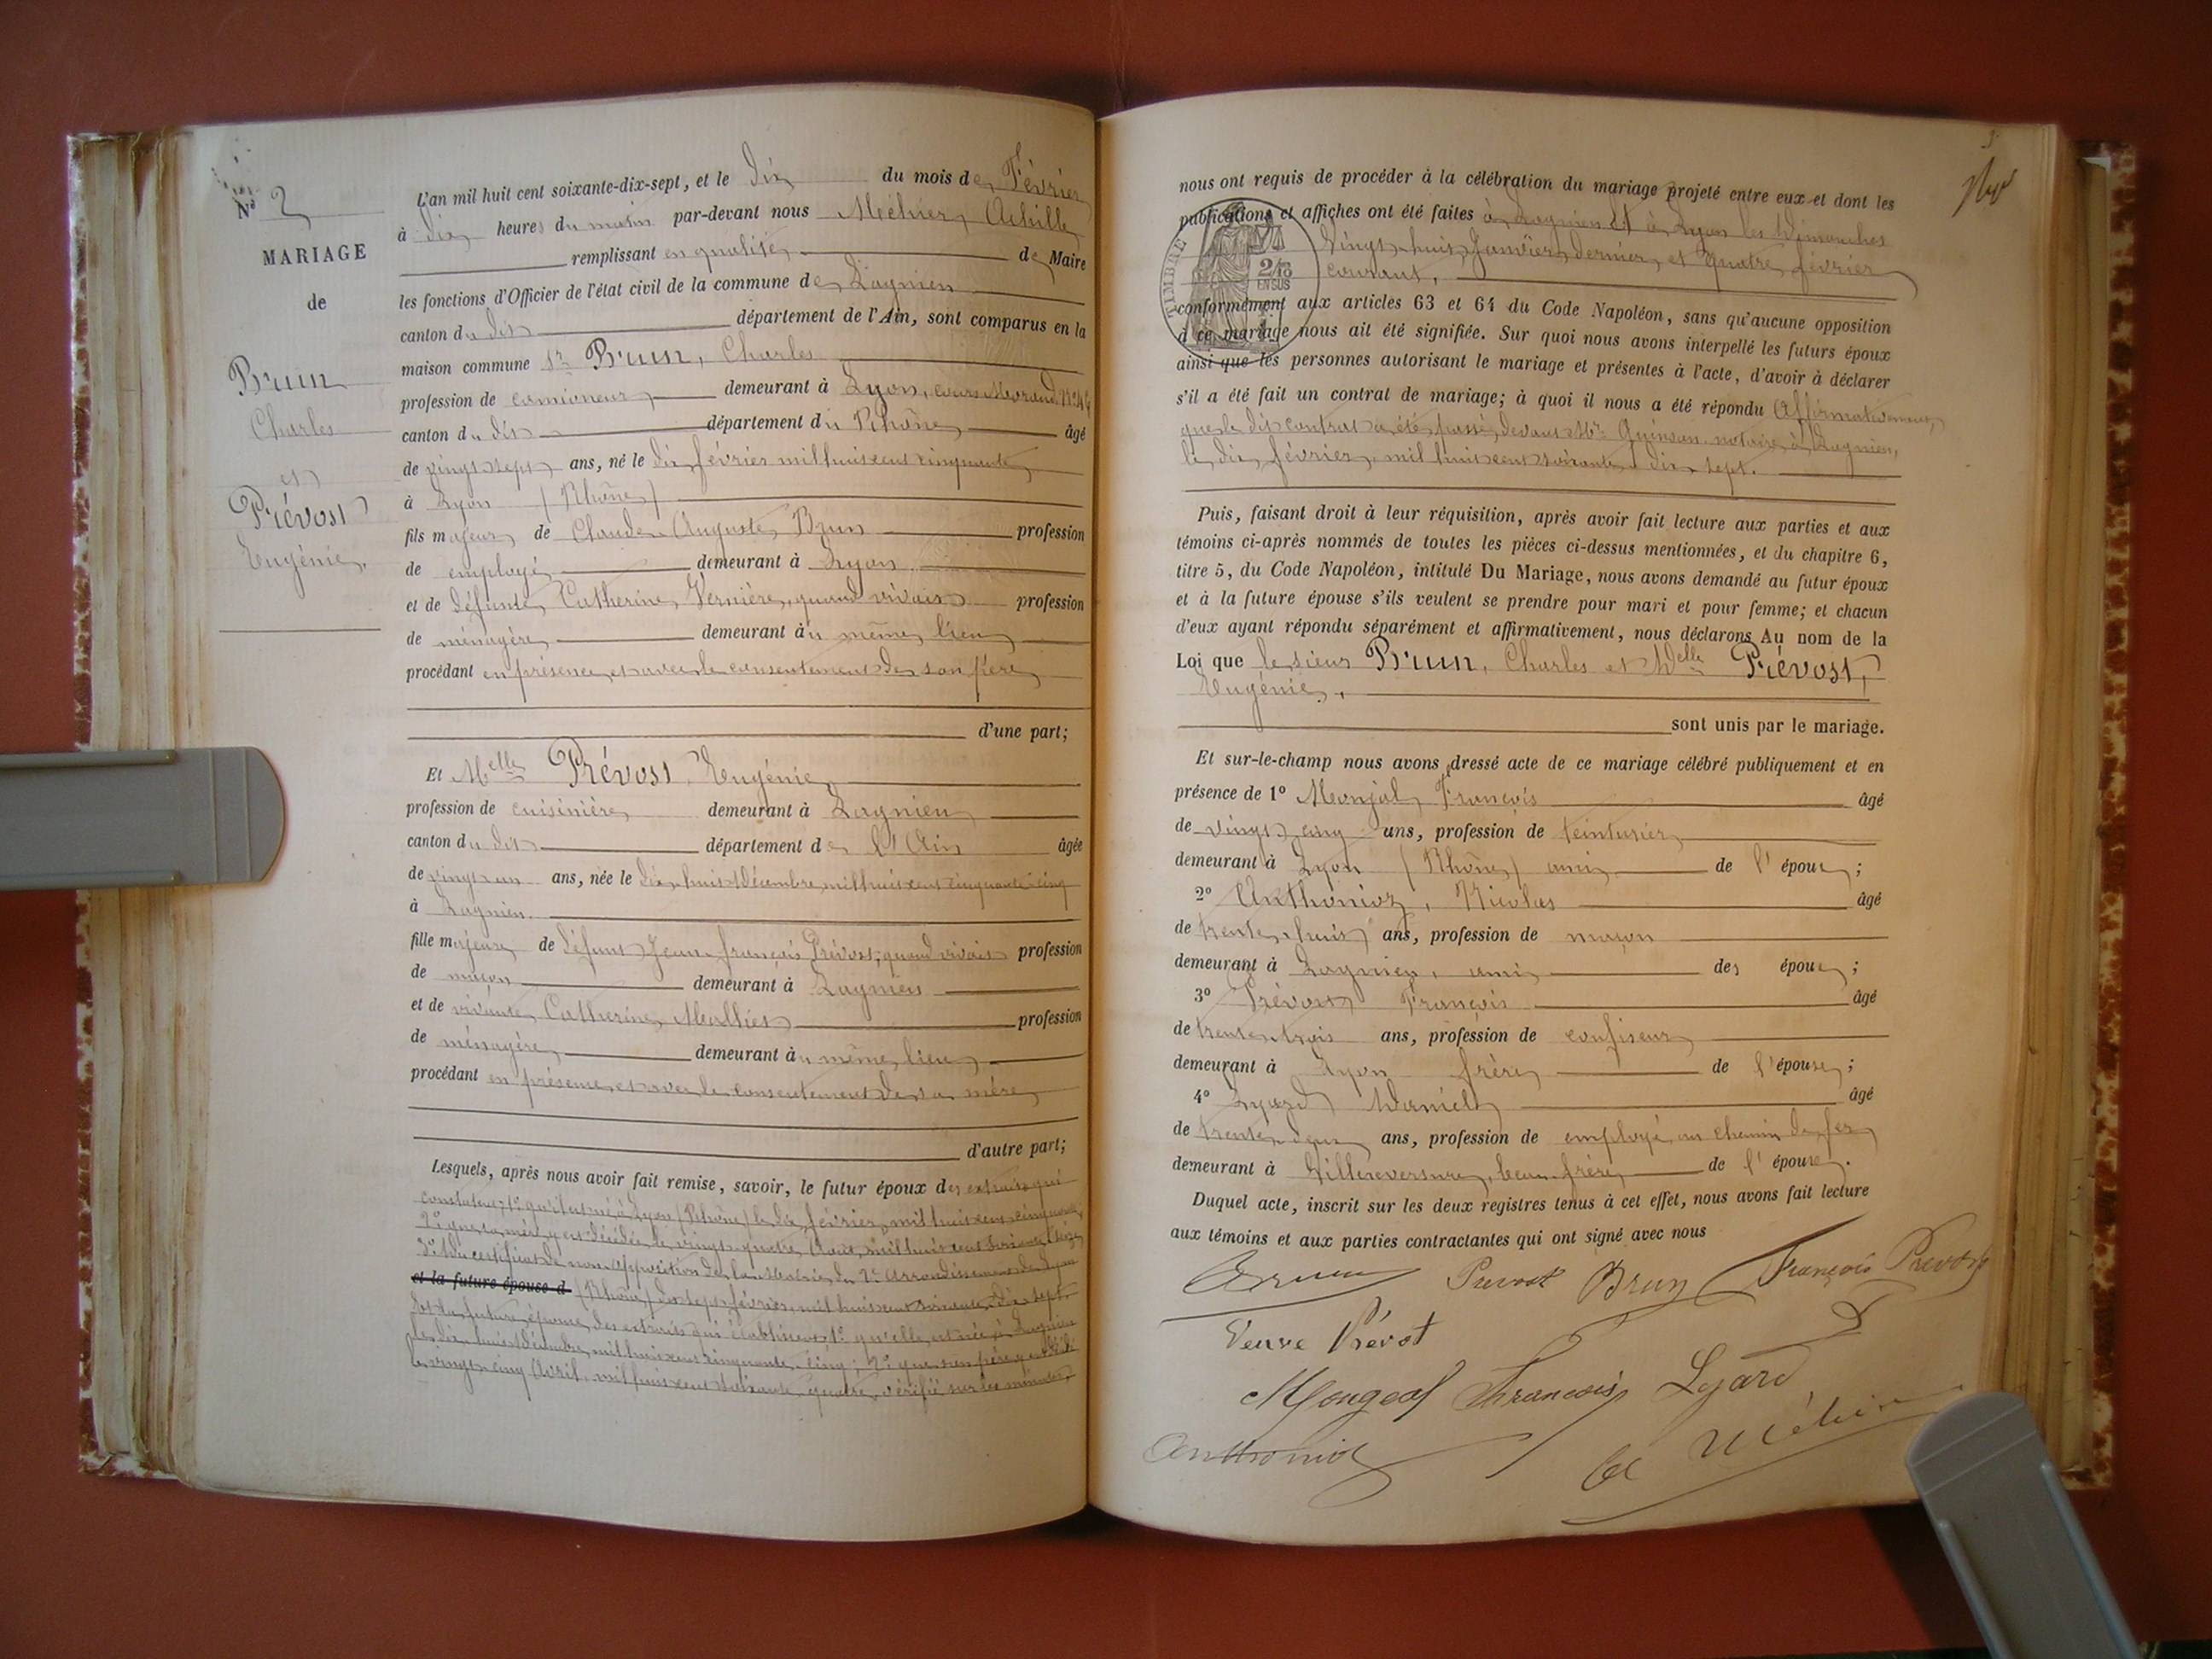 N° 2
MARIAGE
de
Brun
Charles
et
Prévost
Eugénie.
L'an mil huit cent soixante-dix-sept, et le dix du mois de Février
à dix heures du matin par-devant nous Méhier Achille
remplissant en qualité de Maire
les fonctions d'Officier de l'état civil de la commune de Lagnieu
canton du dit département de l'Ain, sont comparus en la
maison commune Sr Brun, Charles
profession de camioneur demeurant à Lyon, cours Morand N°
canton du dit département du Rhône âgé
de vingt sept ans, né le dix février mil huit cent cinquante
à Lyon (Rhône)
fils majeur de Claude Auguste Brun profession
de employé demeurant à Lyon
et de défunte Catherine Vernière, quand vivait profession
de ménagère demeurant au même lieu
procédant en présence et avec le consentement de son père
d'une part;
Et Melle Prévost Eugénie
profession de cuisinière demeurant à Lagnieu
canton du dit département de l'Ain âgée
de vingt un ans, née le dix huit décembre mil huit cent cinquante cinq
à Lagnieu
fille majeure de défunt Jean François Prévost, quand vivait profession
de maçon demeurant à Lagnieu
et de vivante Catherine Mallet profession
de ménagère demeurant au même lieu
procédant en présence et avec le consentement de sa mère
d'autre part;
Lesquels, après nous avoir fait remise, savoir, le futur époux des extraits qui
constatent; 1° qu'il est né à Lyon (Rhône) le dix février mil huit cent cinquante,
2° que sa mère y est décédée le vingt-quatre Août, mil huit cent soixante seize
3° du certificat de non opposition de la Mairie du 2e Arrondissement de Lyon
et la future épouse d (Rhône) du sept février mil huit cent soixante dix sept.
Et la future épouse des extraits qui établissent; 1° qu'elle est née à Lagnieu
le dix huit décembre mil huit cent cinquante cinq; 2° que son père y est décédé
le vingt cinq Avril mil huit cent soixante quatre, vérifié sur les minutes,
3
nous ont requis de procéder à la célébration du mariage projeté entre eux et dont les
publications et affiches ont été faites à Lagnieu et à Lyon les Dimanches
vingt huit Janvier dernier et quatre février
courant,
TIMBRE
2/10
EN SUS
conformément aux articles 63 et 64 du Code Napoléon, sans qu'aucune opposition
à ce mariage nous ait été signifiée. Sur quoi nous avons interpellé les futurs époux
ainsi que les personnes autorisant le mariage et présentes à l'acte, d'avoir à déclarer
s'il a été fait un contrat de mariage; à quoi il nous a été répondu Affirmativement,
que le dit contrat a été passé devant Me Quinson notaire à Lagnieu,
le dix février mil huit cent soixante dix sept.
Puis, faisant droit à leur réquisition, après avoir fait lecture aux parties et aux
témoins ci-après nommés de toutes les pièces ci-dessus mentionnées, et du chapitre 6,
titre 5, du Code Napoléon, intitulé Du Mariage, nous avons demandé au futur époux
et à la future épouse s'ils veulent se prendre pour mari et pour femme; et chacun
d'eux ayant répondu séparément et affirmativement, nous déclarons Au nom de la
Loi que le sieur Brun, Charles et Delle Prévost,
Eugénie,
sont unis par le mariage.
Et sur-le-champ nous avons dressé acte de ce mariage célébré publiquement et en
présence de 1° Monjal François âgé
de vingt cinq ans, profession de teinturier
demeurant à Lyon (Rhône) ami de l'époux;
2° Anthonioz, Nicolas âgé
de trente huit ans, profession de maçon
demeurant à Lagnieu, ami des époux;
3° Prévost François âgé
de trente trois ans, profession de confiseur
demeurant à Lyon frère de l'épouse;
4° Lyard Daniel âgé
de trente deux ans, profession de employé au chemin de fer
demeurant à Villereversure, beau frère de l'épouse.
Duquel acte, inscrit sur les deux registres tenus à cet effet, nous avons fait lecture
aux témoins et aux parties contractantes qui ont signé avec nous
Brun Prevost Brun François Prevost
Veuve Prévot
Mongeal François Lyard
Anthonioz A Méhier